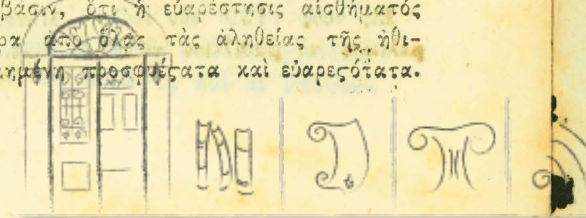 βασιν, ὅτι ἡ εὐαρέστησις αἰσθήματός
ρα ἀπὸ ὅλας τὰς ἀληθείας τῆς ἠθι-
ημένη προσφυέςατα καὶ εὐαρεςότατα.